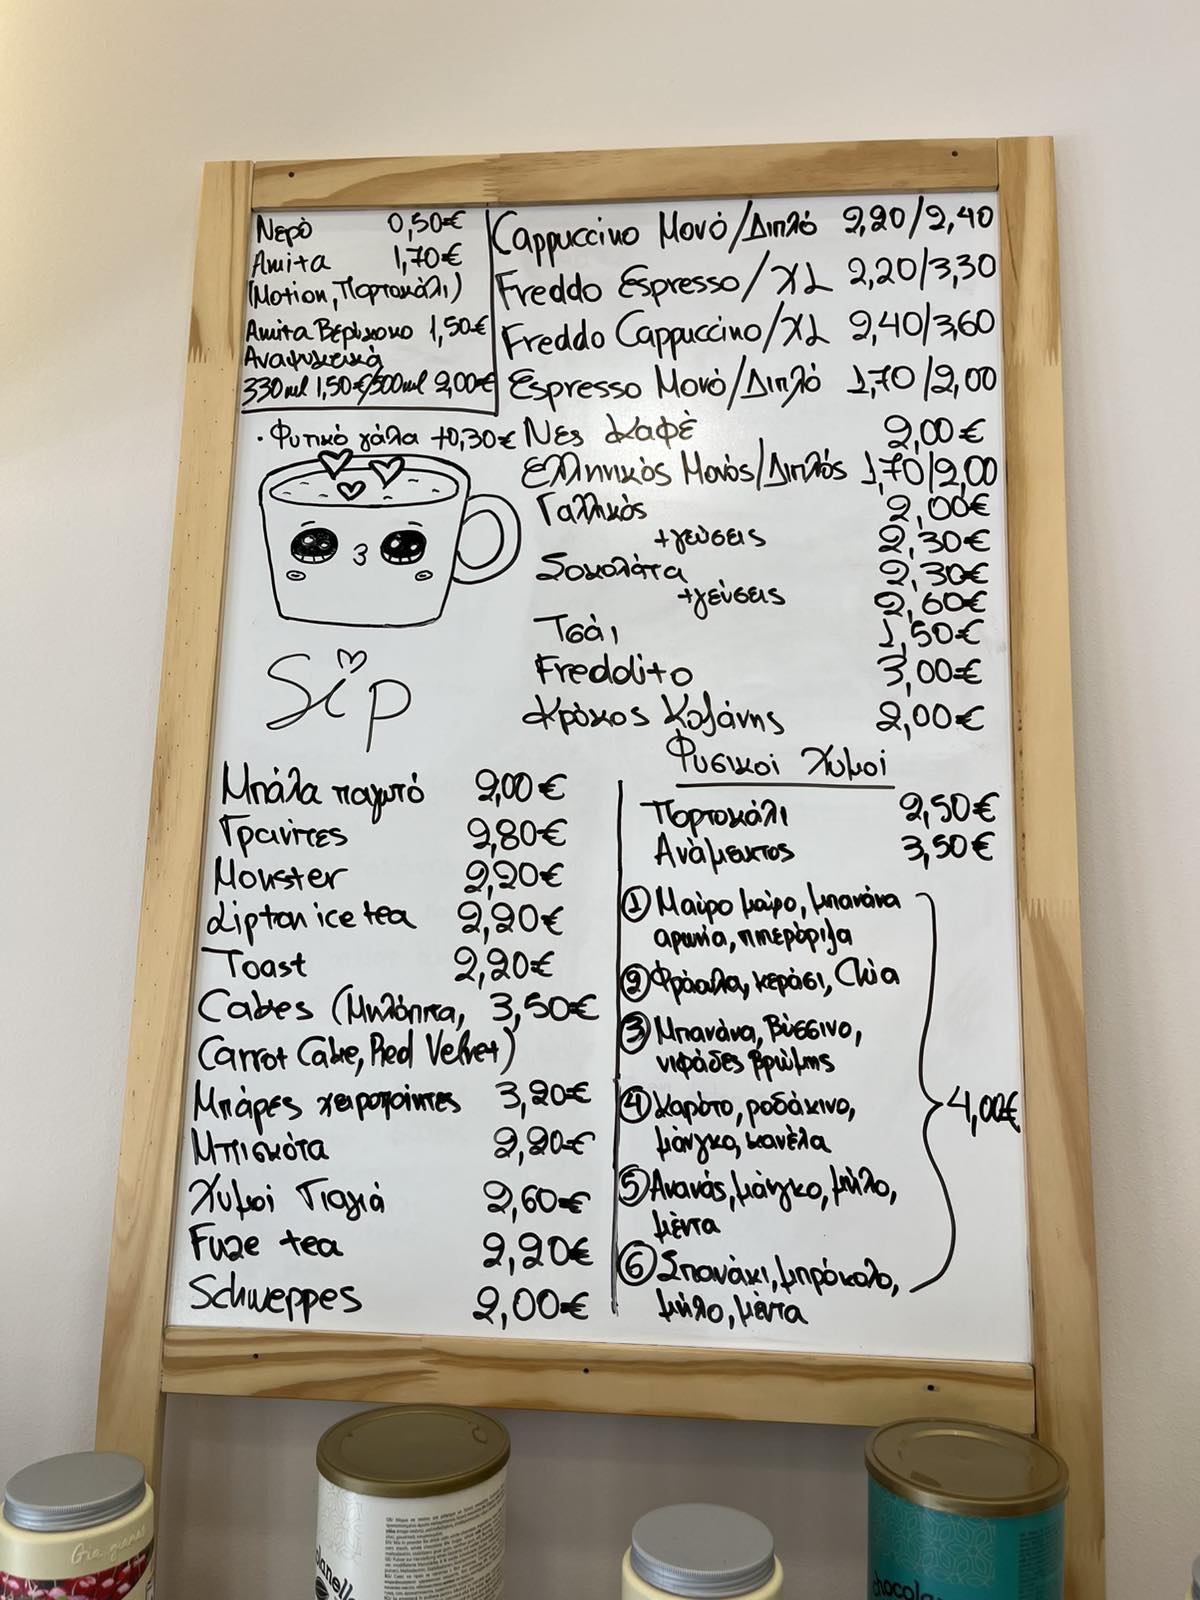 Νερό 0,50€
Amita 1,70€
(Motion, Πορτοκάλι)
Amita Βερίκοκο 1,50€
Αναψυκτικά
330ml 1,50€/500ml 2,00€
· Φυτικό γάλα +0,30€
Sip
Cappuccino Μονό/Διπλό 2,20/2,40
Freddo Espresso/XL 2,20/3,30
Freddo Cappuccino/XL 2,40/3,60
Espresso Μονό/Διπλό 1,70/2,00
Νες Καφέ 2,00€
Ελληνικός Μονός/Διπλός 1,70/2,00
Γαλλικός 2,00€
+γεύσεις 2,30€
Σοκολάτα 2,30€
+γεύσεις 2,60€
Τσάι 1,50€
Freddito 3,00€
Κρόκος Κοζάνης 2,00€
Μπάλα παγωτό 2,00€
Γρανίτες 2,80€
Monster 2,20€
Lipton ice tea 2,20€
Toast 2,20€
Cakes (Μηλόπιτα, 3,50€
Carrot Cake, Red Velvet)
Μπάρες χειροποίητες 3,20€
Μπισκότα 2,20€
Χυμοί Γιαγιά 2,60€
Fuze tea 2,20€
Schweppes 2,00€
Φυσικοί Χυμοί
Πορτοκάλι 2,50€
Ανάμεικτος 3,50€
① Μαύρο μαύρο, μπανάνα
αρωνία, πιπερόριζα
② Φράουλα, κεράσι, Chia
③ Μπανάνα, βύσσινο,
νιφάδες βρώμης
④ Καρότο, ροδάκινο,
μάνγκο, κανέλα
⑤ Ανανάς, μάνγκο, μήλο,
μέντα
⑥ Σπανάκι, μπρόκολο,
μήλο, μέντα
4,00€
Gia giamas
chocola